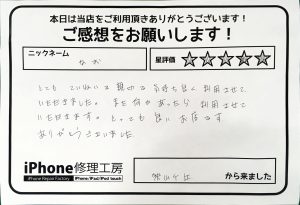 本日は当店をご利用頂きありがとうございます!
ご感想をお願いします!
ニックネーム
なお
星評価 ☆☆☆☆☆
とても ていねいで 親切で 気持ち良く 利用させて
いただきました。 また何かあったら 利用させて
いただきます。 とっても 良い お店です
ありがとうございました
iPhone修理工房
iPhone Repair Factory iPhone/iPad/iPod touch
から来ました